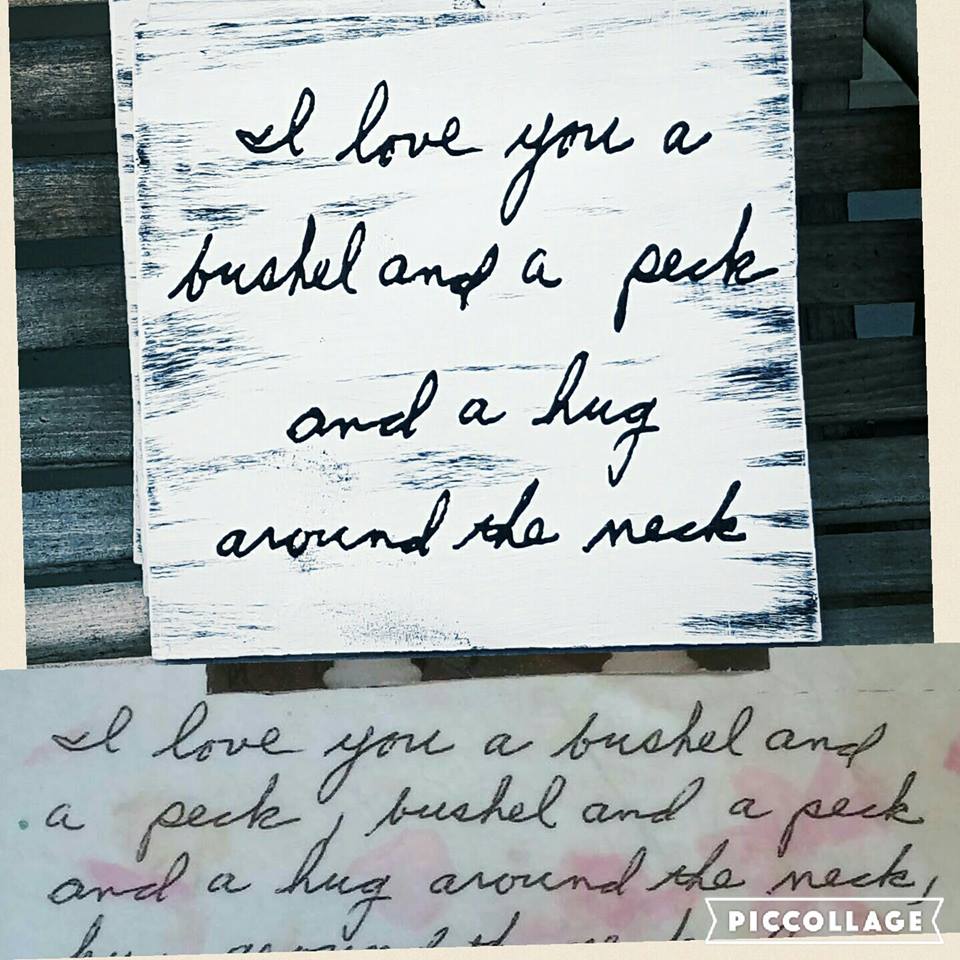 I love you a
bushel and a peck
and a hug
around the neck
I love you a bushel and
a peck, bushel and a peck
and a hug around the neck,
PICCOLLAGE